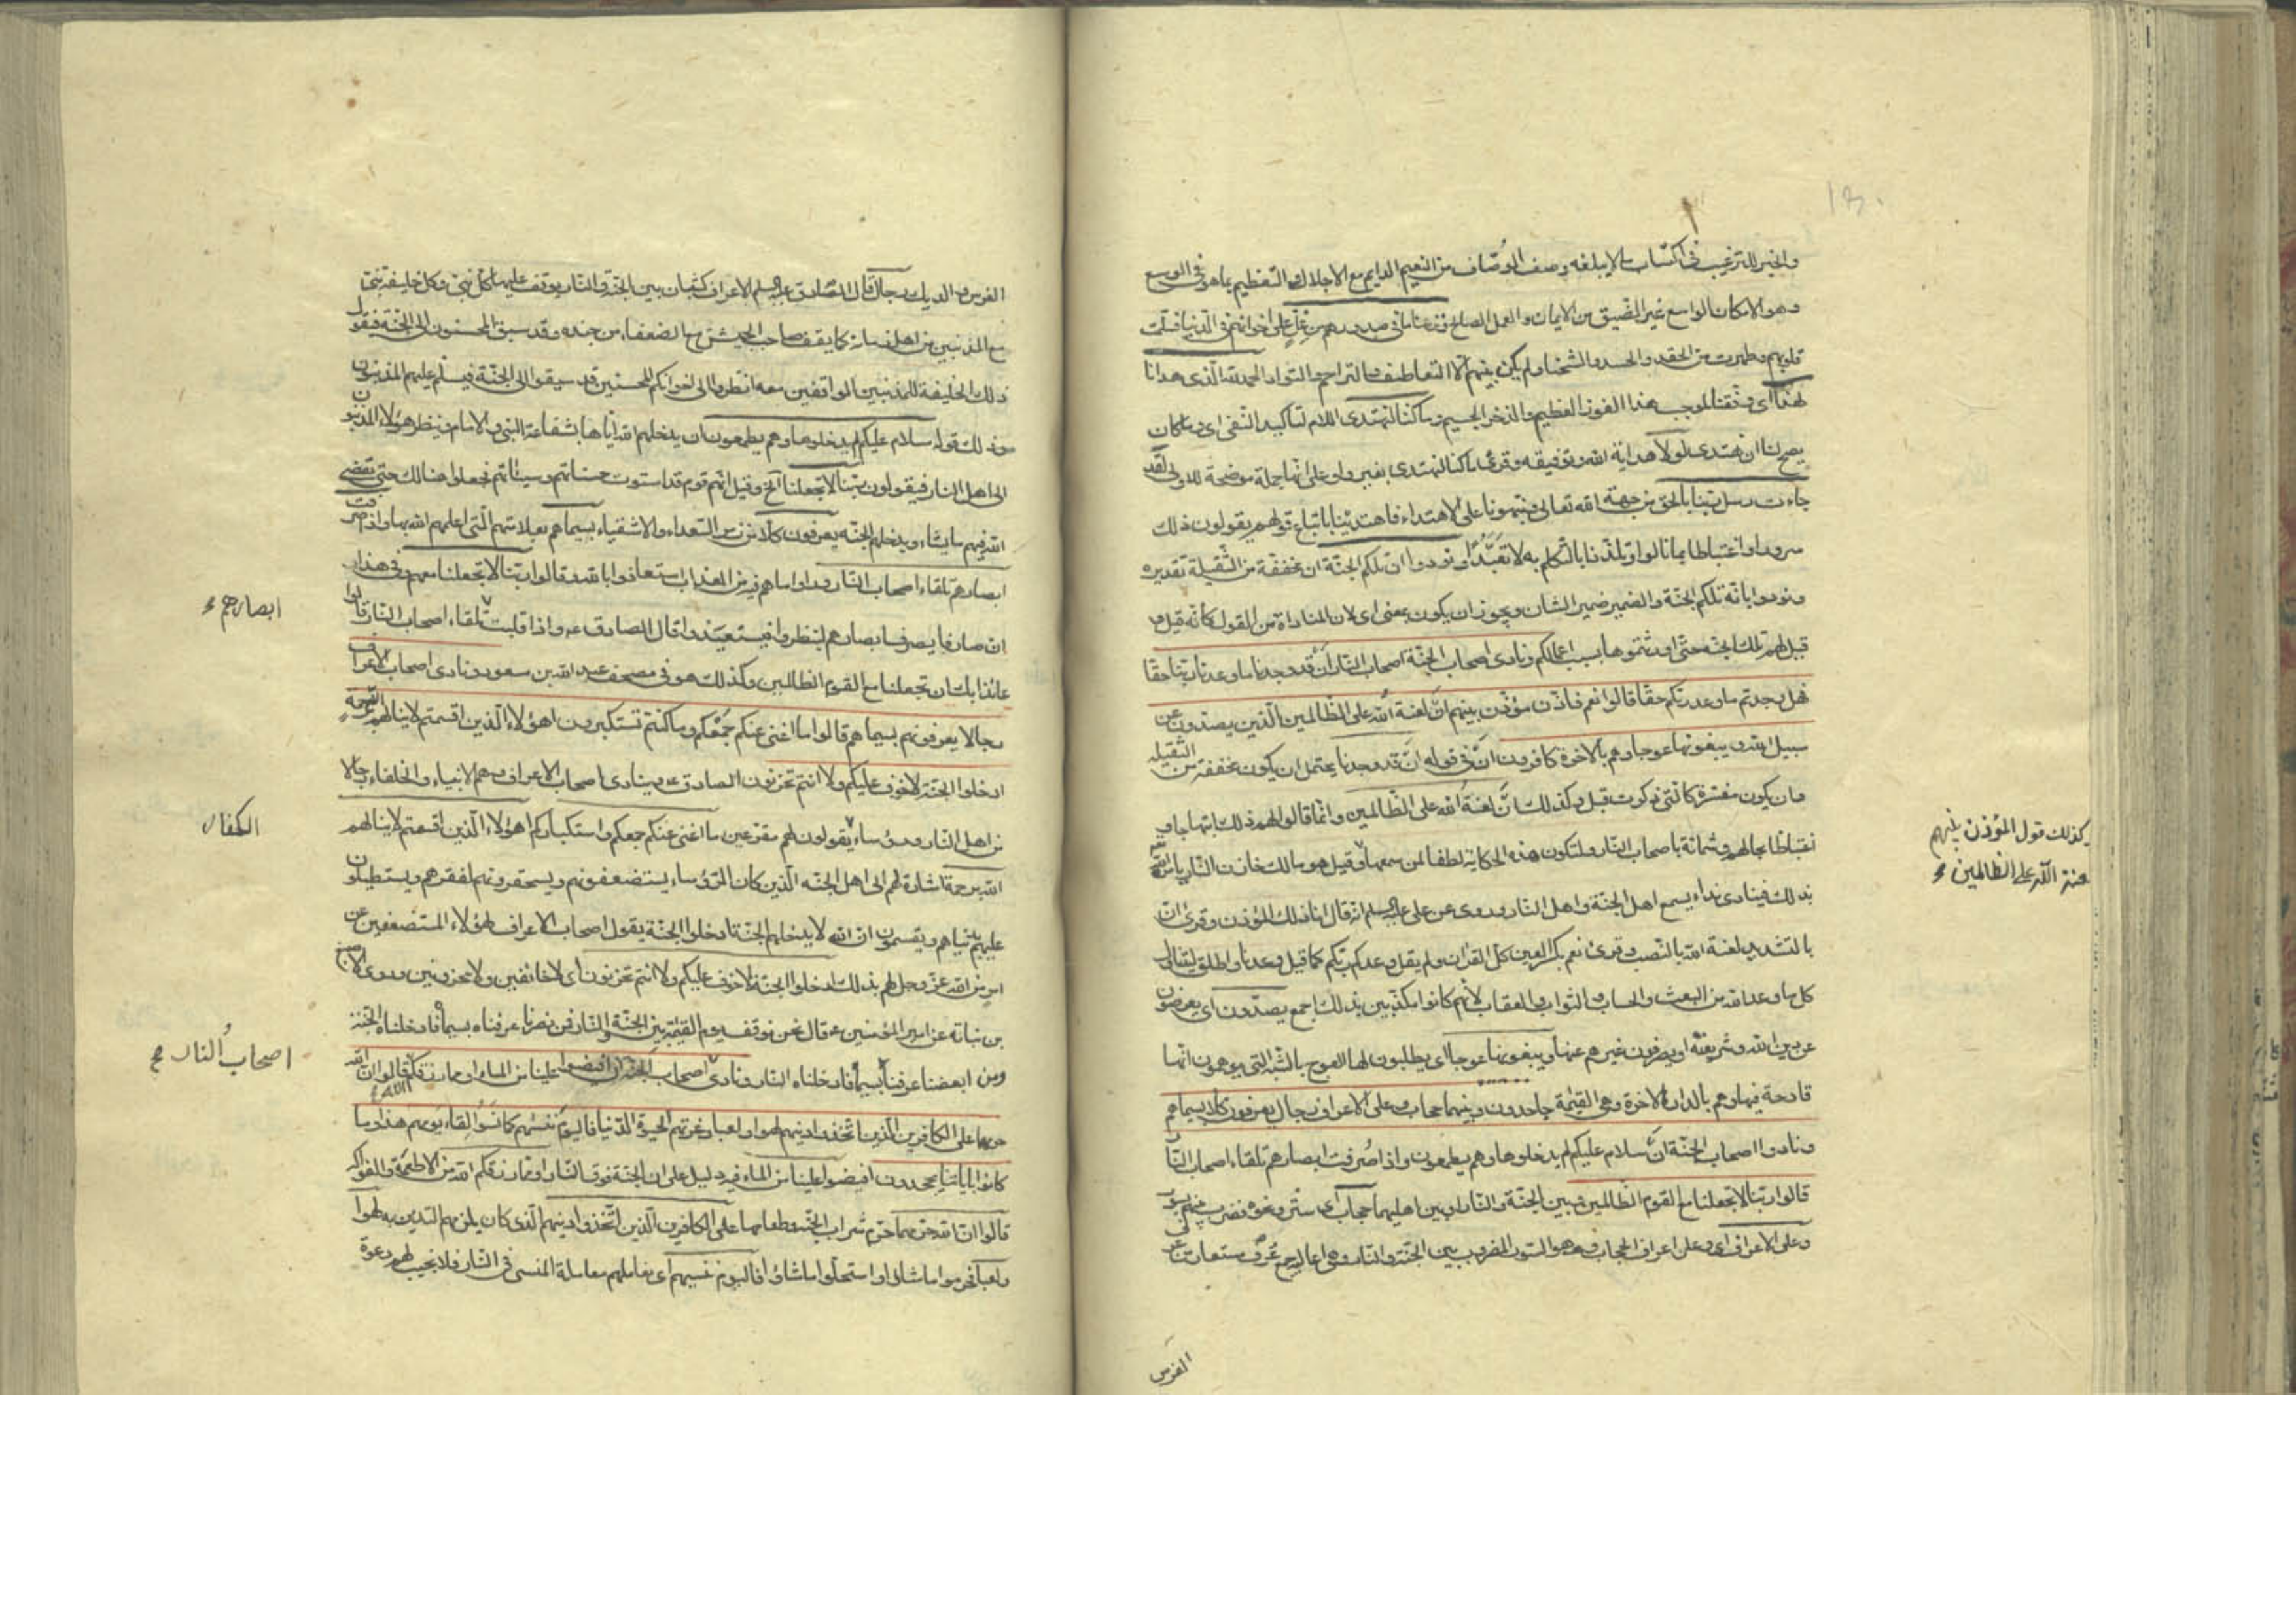 ١٣٠
والخبر للترغيب في اكتساب ما لا يبلغه وصف الوصّاف من النعيم الدايم مع الاجلال والتعظيم بما هو في الوسع
وهو الامكان الواسع غير الضيق من الايمان والعمل الصالح ونزعنا ما في صدورهم من غلّ على اخوانهم في الدنيا فسلمت
قلوبهم وطهرت من الحقد والحسد والشحنا ولم يكن بينهم الا التعاطف والتراحم والتواد الحمد لله الّذي هدانا
لهذا اي وفّقنا لموجب هذا الفوز العظيم والذخر الجسيم وما كنا لنهتدي اللام لتأكيد النفي اي وما كان
يصح لنا ان نهتدي لولا هداية الله وتوفيقه وقرئ ما كنا لنهتدي بغير واو على انّها جملة موضحة للاولى لقد
جاءت رسل ربّنا بالحق من جهة الله تعالى فنبّهونا على الاهتداء فاهتدينا باتباع قولهم يقولون ذلك
سرورا واغتباطا بما نالوا وتلذذا بالتكلم به لا تعبّدا ونودوا ان تلكم الجنّة ان مخففة من الثقيلة تقديره
ونودوا بانّه تلكم الجنّة والضمير ضمير الشان ويجوز ان يكون بمعنى اي لان المناداة من القول كانّه قيل و
قيل لهم تلك الجنّة حتى اورثتموها بسبب اعمالكم ونادى اصحاب الجنّة اصحاب النار ان قد وجدنا ما وعدنا ربّنا حقا
فهل وجدتم ما وعد ربّكم حقّا قالوا نعم فاذّن مؤذّن بينهم انّ لعنة الله على الظّالمين الّذين يصدّون عن
سبيل الله ويبغونها عوجا وهم بالاخرة كافرون ان في قوله ان قد وجدنا يحتمل ان يكون مخففة من الثقيلة
وان يكون مفسّرة كالتي ذكرت قبل وكذلك انّ لعنة الله على الظّالمين وانّما قالوا لهم ذلك ابتهاجا و
اغتباطا بحالهم وشماتة باصحاب النّار ولتكون هذه الحكاية لطفا لمن سمعها وقيل هو مالك خازن النّار يامره الله
بذلك فينادي نداء يسمع اهل الجنّة واهل النّار وروي عن علي عليه السلم انّه قال انا ذلك المؤذن وقرئ انّ
بالتشديد لعنة الله بالنّصب وقرئ نعم بكسر العين كلّ القرآن ولم يقل وعدكم ربّكم كما قيل وعدنا واطلق ليتناول
كل ما وعد الله من البعث والحساب والثواب والعقاب لانّهم كانوا مكذّبين بذلك اجمع يصدّون اي يعرضون
عن دين الله وشريعته او يصرفون غيرهم عنها ويبغونها عوجا اي يطلبون لها العوج بالشّبه التي يوهمون انّها
قادحة فيها وهم بالدار الاخرة وهي القيمة جاحدون وبينهما حجاب وعلى الاعراف رجال يعرفون كلّا بسيماهم
ونادوا اصحاب الجنّة ان سلام عليكم لم يدخلوها وهم يطمعون واذا صُرفت ابصارهم تلقاء اصحاب النّار
قالوا ربّنا لا تجعلنا مع القوم الظالمين وبين الجنّة والنار او بين اهليهما حجاب اي ستر ونحوه فضرب بينهم بسور
وعلى الاعراف اي وعلى اعراف الحجاب وهو السّور المضروب بين الجنّة والنّار وهي اعاليه جمع عُرف مستعار من عرف
الفرس
كذلك قول المؤذن بينهم
لعنة الله على الظالمين
الفرس والديك رجال قال الصّادق عليه السلم الاعراف كثبان بين الجنّة والنّار يوقف عليها كل نبي وكل خليفة نبي
مع المذنبين من اهل زمانه كما يقف صاحب الجيش مع الضعفاء من جنده وقد سبق المحسنون الى الجنّة فيقول
ذلك الخليفة للمذنبين الواقفين معه انظروا الى اخوانكم المحسنين قد سيقوا الى الجنّة فيسلّم عليهم المذنبون
وذلك قوله سلام عليكم لم يدخلوها وهم يطمعون ان يدخلهم الله ايّاها بشفاعة النبي والامام وينظر هؤلاء المذنبون
الى اهل النار فيقولون ربّنا لا تجعلنا الخ وقيل انّهم قوم قد استوت حسناتهم وسيئاتهم فجعلوا هنالك حتى يقضي
الله فيهم ما يشاء ويدخلهم الجنّة يعرفون كلّا من زمر السّعداء والاشقياء بسيماهم بعلامتهم الّتي اعلمهم الله بها واذا صرفت
ابصارهم تلقاء اصحاب النّار وراوا ما هم فيه من العذاب استعاذوا بالله وقالوا ربّنا لا تجعلنا معهم وفي هذا
ان صارفا يصرف ابصارهم لينظروا فيستعيذوا قال الصادق ع واذا قلبت تلقاء اصحاب النّار قالوا
عائذا بك ان تجعلنا مع القوم الظالمين وكذلك هو في مصحف عبد الله بن مسعود ونادى اصحاب الاعراف
رجالا يعرفونهم بسيماهم قالوا ما اغنى عنكم جمعكم وما كنتم تستكبرون اهؤلاء الّذين اقسمتم لا ينالهم الله برحمة
ادخلوا الجنّة لا خوف عليكم ولا انتم تحزنون الصادق ع وينادي اصحاب الاعراف وهم الانبياء والخلفاء رجالا
من اهل النّار ورؤساء يقولون لهم مقرّعين ما اغنى عنكم جمعكم واستكباركم اهؤلاء الّذين اقسمتم لا ينالهم
الله برحمة اشارة لهم الى اهل الجنّة الّذين كان الرّؤساء يستضعفونهم ويستحقرونهم لفقرهم ويستطيلون
عليهم بدنياهم ويقسمون ان الله لا يدخلهم الجنّة ادخلوا الجنّة يقول اصحاب الاعراف لهؤلاء المستضعفين عن
امر من الله عزّ وجل لهم بذلك ادخلوا الجنّة لا خوف عليكم ولا انتم تحزنون اي لا خائفين ولا محزونين وروى الاصبغ
بن نباته عن امير المؤمنين ع قال نحن نوقف يوم القيمة بين الجنّة والنّار فمن نصرنا عرفناه بسيماه فادخلناه الجنّة
ومن ابغضنا عرفناه بسيماه فادخلناه النار ونادى اصحاب الجنّة ان افيضوا علينا من الماء او مما رزقكم الله قالوا ان الله
حرمهما على الكافرين الّذين اتّخذوا دينهم لهوا ولعبا وغرّتهم الحيوة الدّنيا فاليوم ننسهم كما نسوا لقاء يومهم هذا وما
كانوا باياتنا يجحدون افيضوا علينا من الماء فيه دليل على ان الجنّة فوق النّار او مما رزقكم الله من الاطعمة والفواكه
قالوا ان الله حرّمهما حرّم شراب الجنّة وطعامها على الكافرين الّذين اتّخذوا دينهم الّذي كان يلزمهم التديّن به لهوا
ولعبا فحرموا ما شاؤا واستحلّوا ما شاؤا فاليوم ننسيهم اي نعاملهم معاملة المنسي في النّار فلا نجيب لهم دعوة
ابصارهم
الكفار
اصحابُ النار